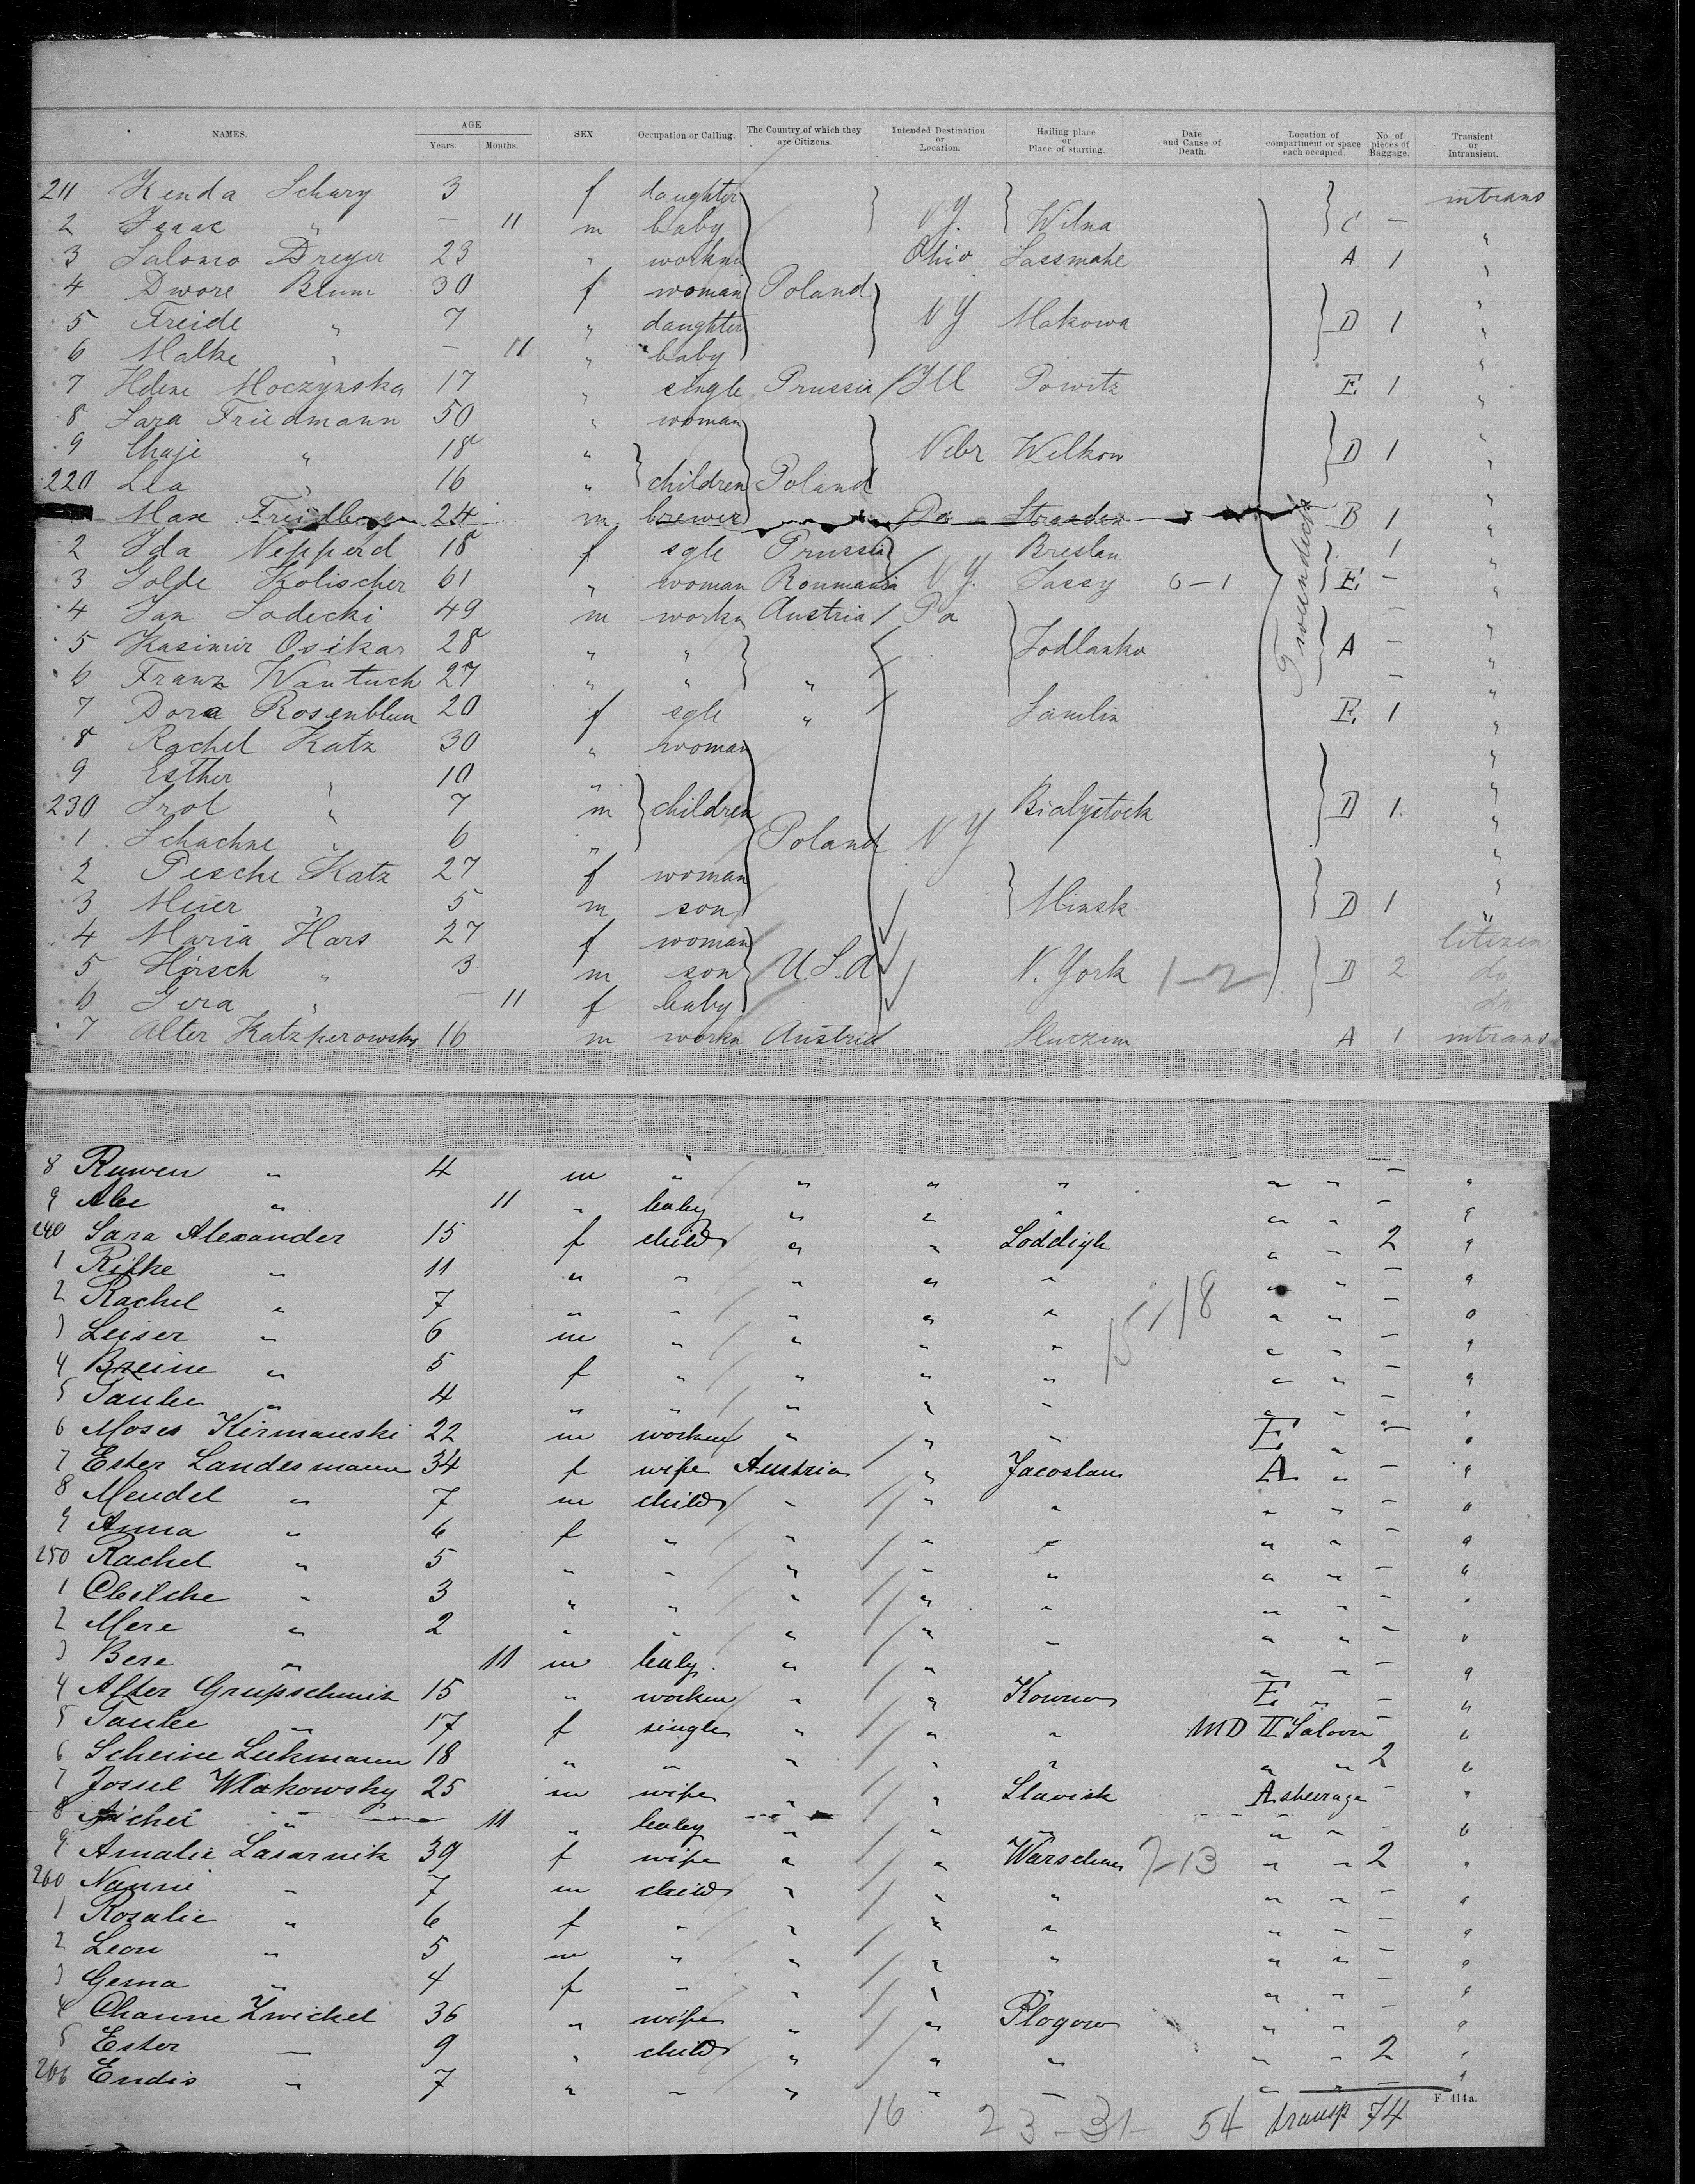 NAMES. AGE Years. Months. SEX Occupation or Calling. The Country of which they are Citizens. Intended Destination or Location. Hailing place or Place of starting. Date and Cause of Death. Location of compartment or space each occupied. No. of pieces of Baggage. Transient or Intransient.
211 Kenda Schary 3 f daughter intrans
2 Isaac " — 11 m baby N.Y. Wilna C —
3 Salomo Dreyer 23 " workm Ohio Sassmake A 1 "
4 Dwore Blum 30 f woman Poland "
5 Freide " 7 " daughter N Y Makowa D 1 "
6 Malke " — 11 " baby "
7 Helene Moczynska 17 " single Prussia / Ill Powitz E 1 "
8 Sara Friedmann 50 " woman "
9 Chaje " 18 " Nebr Welkow D 1 "
220 Lea " 16 " children Poland "
Max Freidberg 24 m brewer Pa B 1 "
2 Ida Nepperd 18 f sgle Prussia Breslau 1 "
3 Golde Kolischer 61 " woman Roumania N Y. Jassy 0-1 E —
4 Jan Sodecki 49 m workm Austria / Pa — "
5 Kasimir Osikar 28 " " Jodlanka A — "
6 Franz Wantuch 27 " " " — "
7 Dora Rosenblum 20 f sgle " E 1 "
8 Rachel Katz 30 " woman "
9 Esther " 10 " "
230 Srol " 7 m children Bialystock D 1. "
1 Schachne " 6 " Poland N Y "
2 Pesche Katz 27 f woman "
3 Meier " 5 m son Minsk D 1 "
4 Maria Hars 27 f woman Citizen
5 Hirsch " 3 m son U.S.A N. York 1-2 D 2 do
6 Gera " — 11 f baby do
7 Alter Katzperowsky 16 m workm Austria A 1 intrans
8 Ruwen " 4 m " " " " " " — "
9 Abe " 11 " baby " " " " " — "
240 Sara Alexander 15 f child " " Loddigk " " 2 "
1 Rifke " 11 " " " " " " " — "
2 Rachel " 7 " " " " " " " — "
3 Leiser " 6 m " " " " " " — "
4 Breine " 5 f " " " " " " — "
5 Taube " 4 " " " " " " " — "
6 Moses Kirmanski 22 m workm " " " E " — "
7 Ester Landesmann 34 f wife Austria " Jacoslau A " — "
8 Mendel " 7 m child " " " " " — "
9 Anna " 6 f " " " " " " — "
250 Rachel " 5 " " " " " " " — "
1 Cheilche " 3 " " " " " " " — "
2 Mere " 2 " " " " " " " — "
3 Bere " 11 m baby " " " " " — "
4 Alter Grupschmit 15 " workm " " Kowno E " — "
5 Taube " 17 f single " " " MD II Saloon — "
6 Scheine Lickmann 18 " " " " " " " 2 "
7 Jossel Wlakowsky 25 m wife " " Slavisk A steerage — "
8 Michel " 11 " baby " " " " " — "
9 Amalie Lasarnik 39 f wife " " Warschau 7-13 " " 2 "
260 Nanni " 7 m child " " " " " — "
1 Rosalie " 6 f " " " " " " — "
2 Leon " 5 m " " " " " " — "
3 Gema " 4 f " " " " " " — "
4 Channe Zwickel 36 " wife " " Plogow " " — "
5 Ester — 9 " child " " " " " 2 "
266 Endis " 7 " " " " " " " — "
F. 414a.
16 23-31- 54 transp 74
15/18
Tweendeck